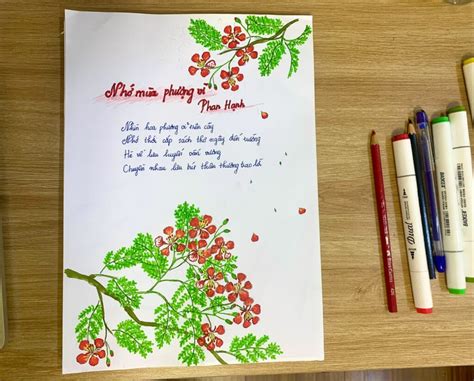 Nhớ mùa phượng vĩ
Phan Hạnh
Nhìn hoa phượng vĩ trên cây
Nhớ thời cắp sách thơ ngây dưới trường
Hè về lưu luyến vấn vương
Chuyền nhau lưu bút thân thương bao lời